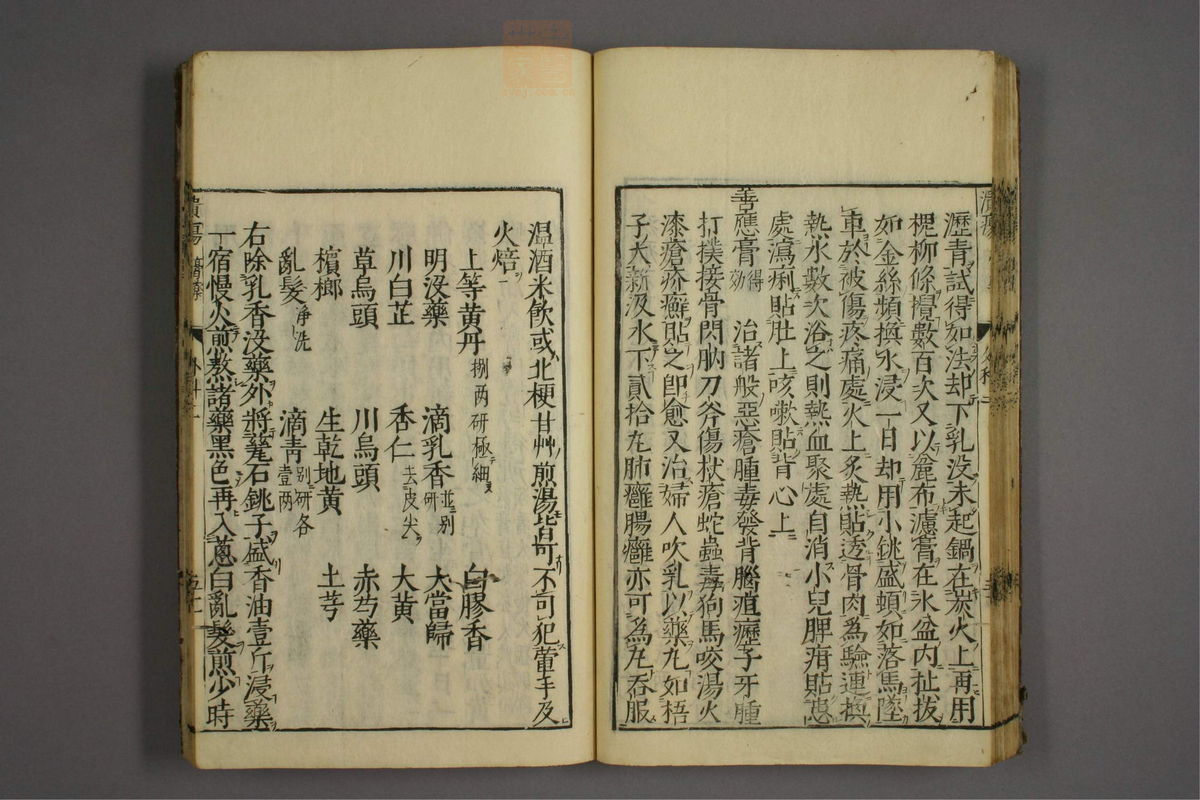 瀝青試得如法却下乳没未起鍋在炭火上再用
槐柳條攪數百次又以麄布濾膏在水盆内扯拔
如金絲頻換水浸一日却用小銚盛頓如落馬墜
車於被傷疼痛處火上炙熱貼透骨肉爲驗連換
熱水數次浴之則熱血聚處自消小兒脾疳貼患
處瀉痢貼肚上咳嗽貼背心上
善應膏 得効 治諸般惡瘡腫毒發背腦疽癧子牙腫
打撲接骨閃肭刀斧傷杖瘡蛇蟲毒狗馬咬湯火
漆瘡疥癬貼之即愈又治婦人吹乳以藥丸如梧
子大新汲水下貳拾丸肺癰腸癰亦可為丸吞服
温酒米飲或北梗甘艸煎湯皆可不可犯葷手及
火焙
上等黄丹 捌两研極細 白膠香
明没藥 滴乳香 並别研 大當歸
川白芷 杏仁 去皮尖 大黄
草烏頭 川烏頭 赤芍藥
檳榔 生乾地黄 土芎
亂髮 净洗 瀝青 别研各壹两
右除乳香没藥外將甆石銚子盛香油壹斤浸藥
一宿慢火煎熬諸藥黑色再入蔥白亂髮煎少時